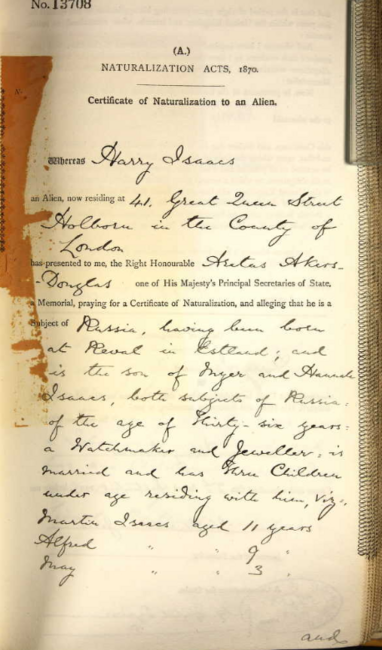 No. 13708
(A.)
NATURALIZATION ACTS, 1870.
Certificate of Naturalization to an Alien.
Whereas Harry Isaacs
an Alien, now residing at 41, Great Queen Street
Holborn in the County of
London
has presented to me, the Right Honourable Aretas Akers-
-Douglas one of His Majesty's Principal Secretaries of State,
a Memorial, praying for a Certificate of Naturalization, and alleging that he is a
Subject of Russia, having been born
at Reval in Estland; and
is the son of Myer and Hannah
Isaacs, both subjects of Russia,
of the age of Thirty-six years:
a Watchmaker and Jeweller, is
married and has Three Children
under age residing with him, viz:,
Martin Isaacs aged 11 years
Alfred " " 9 "
May " " 3 "
and